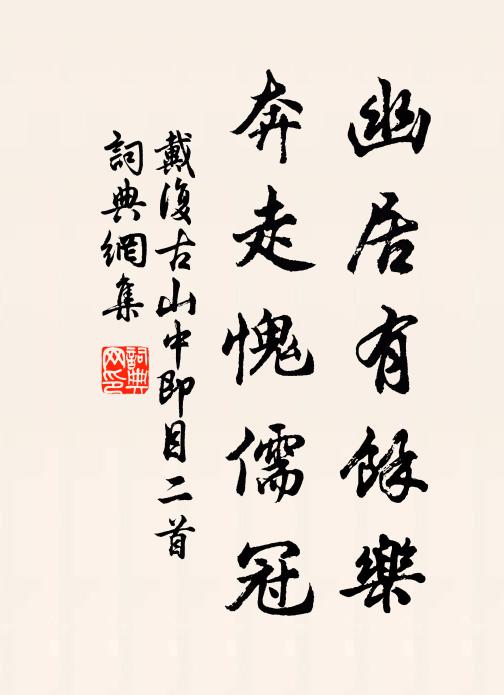 幽居有餘樂
奔走愧儒冠
戴復古山中即目二首
詞典網集
詞典网印